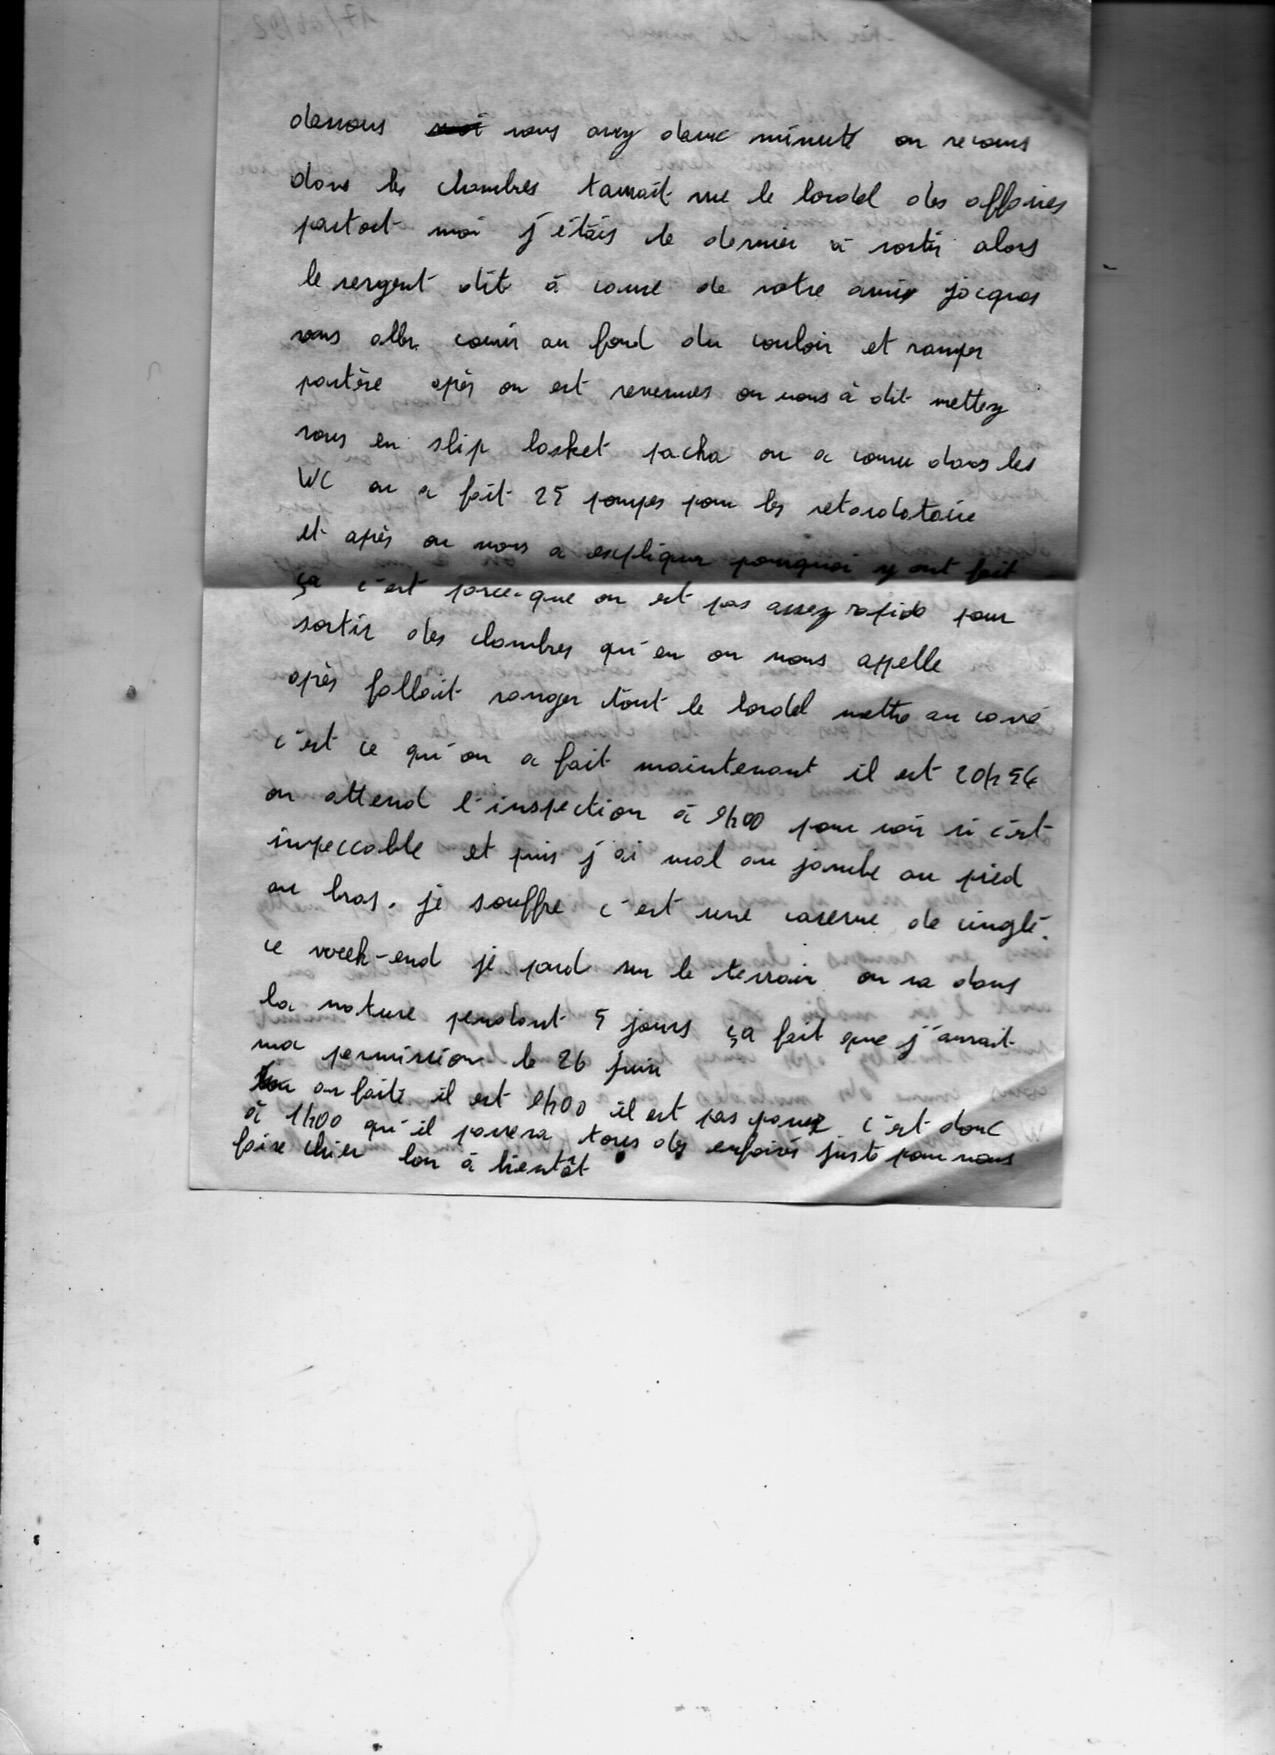 dessous vous avez deux minute on recours
dans les chambres taurait vue le bordel des affaires
partout moi j'étais le dernier à sortir alors
le sergent dit à cause de votre amis jacques
vous allez courir au fond du couloir et ramper
partère après on est revenues on nous à dit mettez
vous en slip basket pacha on a courue dans les
WC on a fait 25 pompes pour les retardataire
et après on nous a expliquer pourquoi y ont fait
ça c'est parce-que on est pas assez rapide pour
sortir des chambres qu'en on nous appelle
après fallait ranger tout le bordel mettre au carré
c'est ce qu'on a fait maintenant il est 20h54
on attend l'inspection à 9h00 pour voir si c'est
impeccable et puis j'ai mal au jambe au pied
au bras. je souffre c'est une caserne de cinglé.
ce week-end je pard sur le terrain on va dans
la nature pendant 5 jours ça fait que j'aurait
ma permission le 26 Juin
au faite il est 9h00 il est pas passez c'est donc
à 1h00 qu'il passera tous des enfoirés juste pour nous
faire chier bon à bientôt